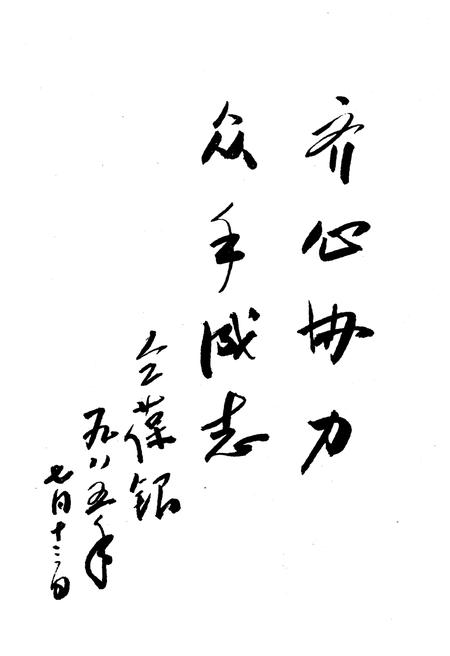 齐心协力
众手成志
仝葆银
一九八五年
七月十二日